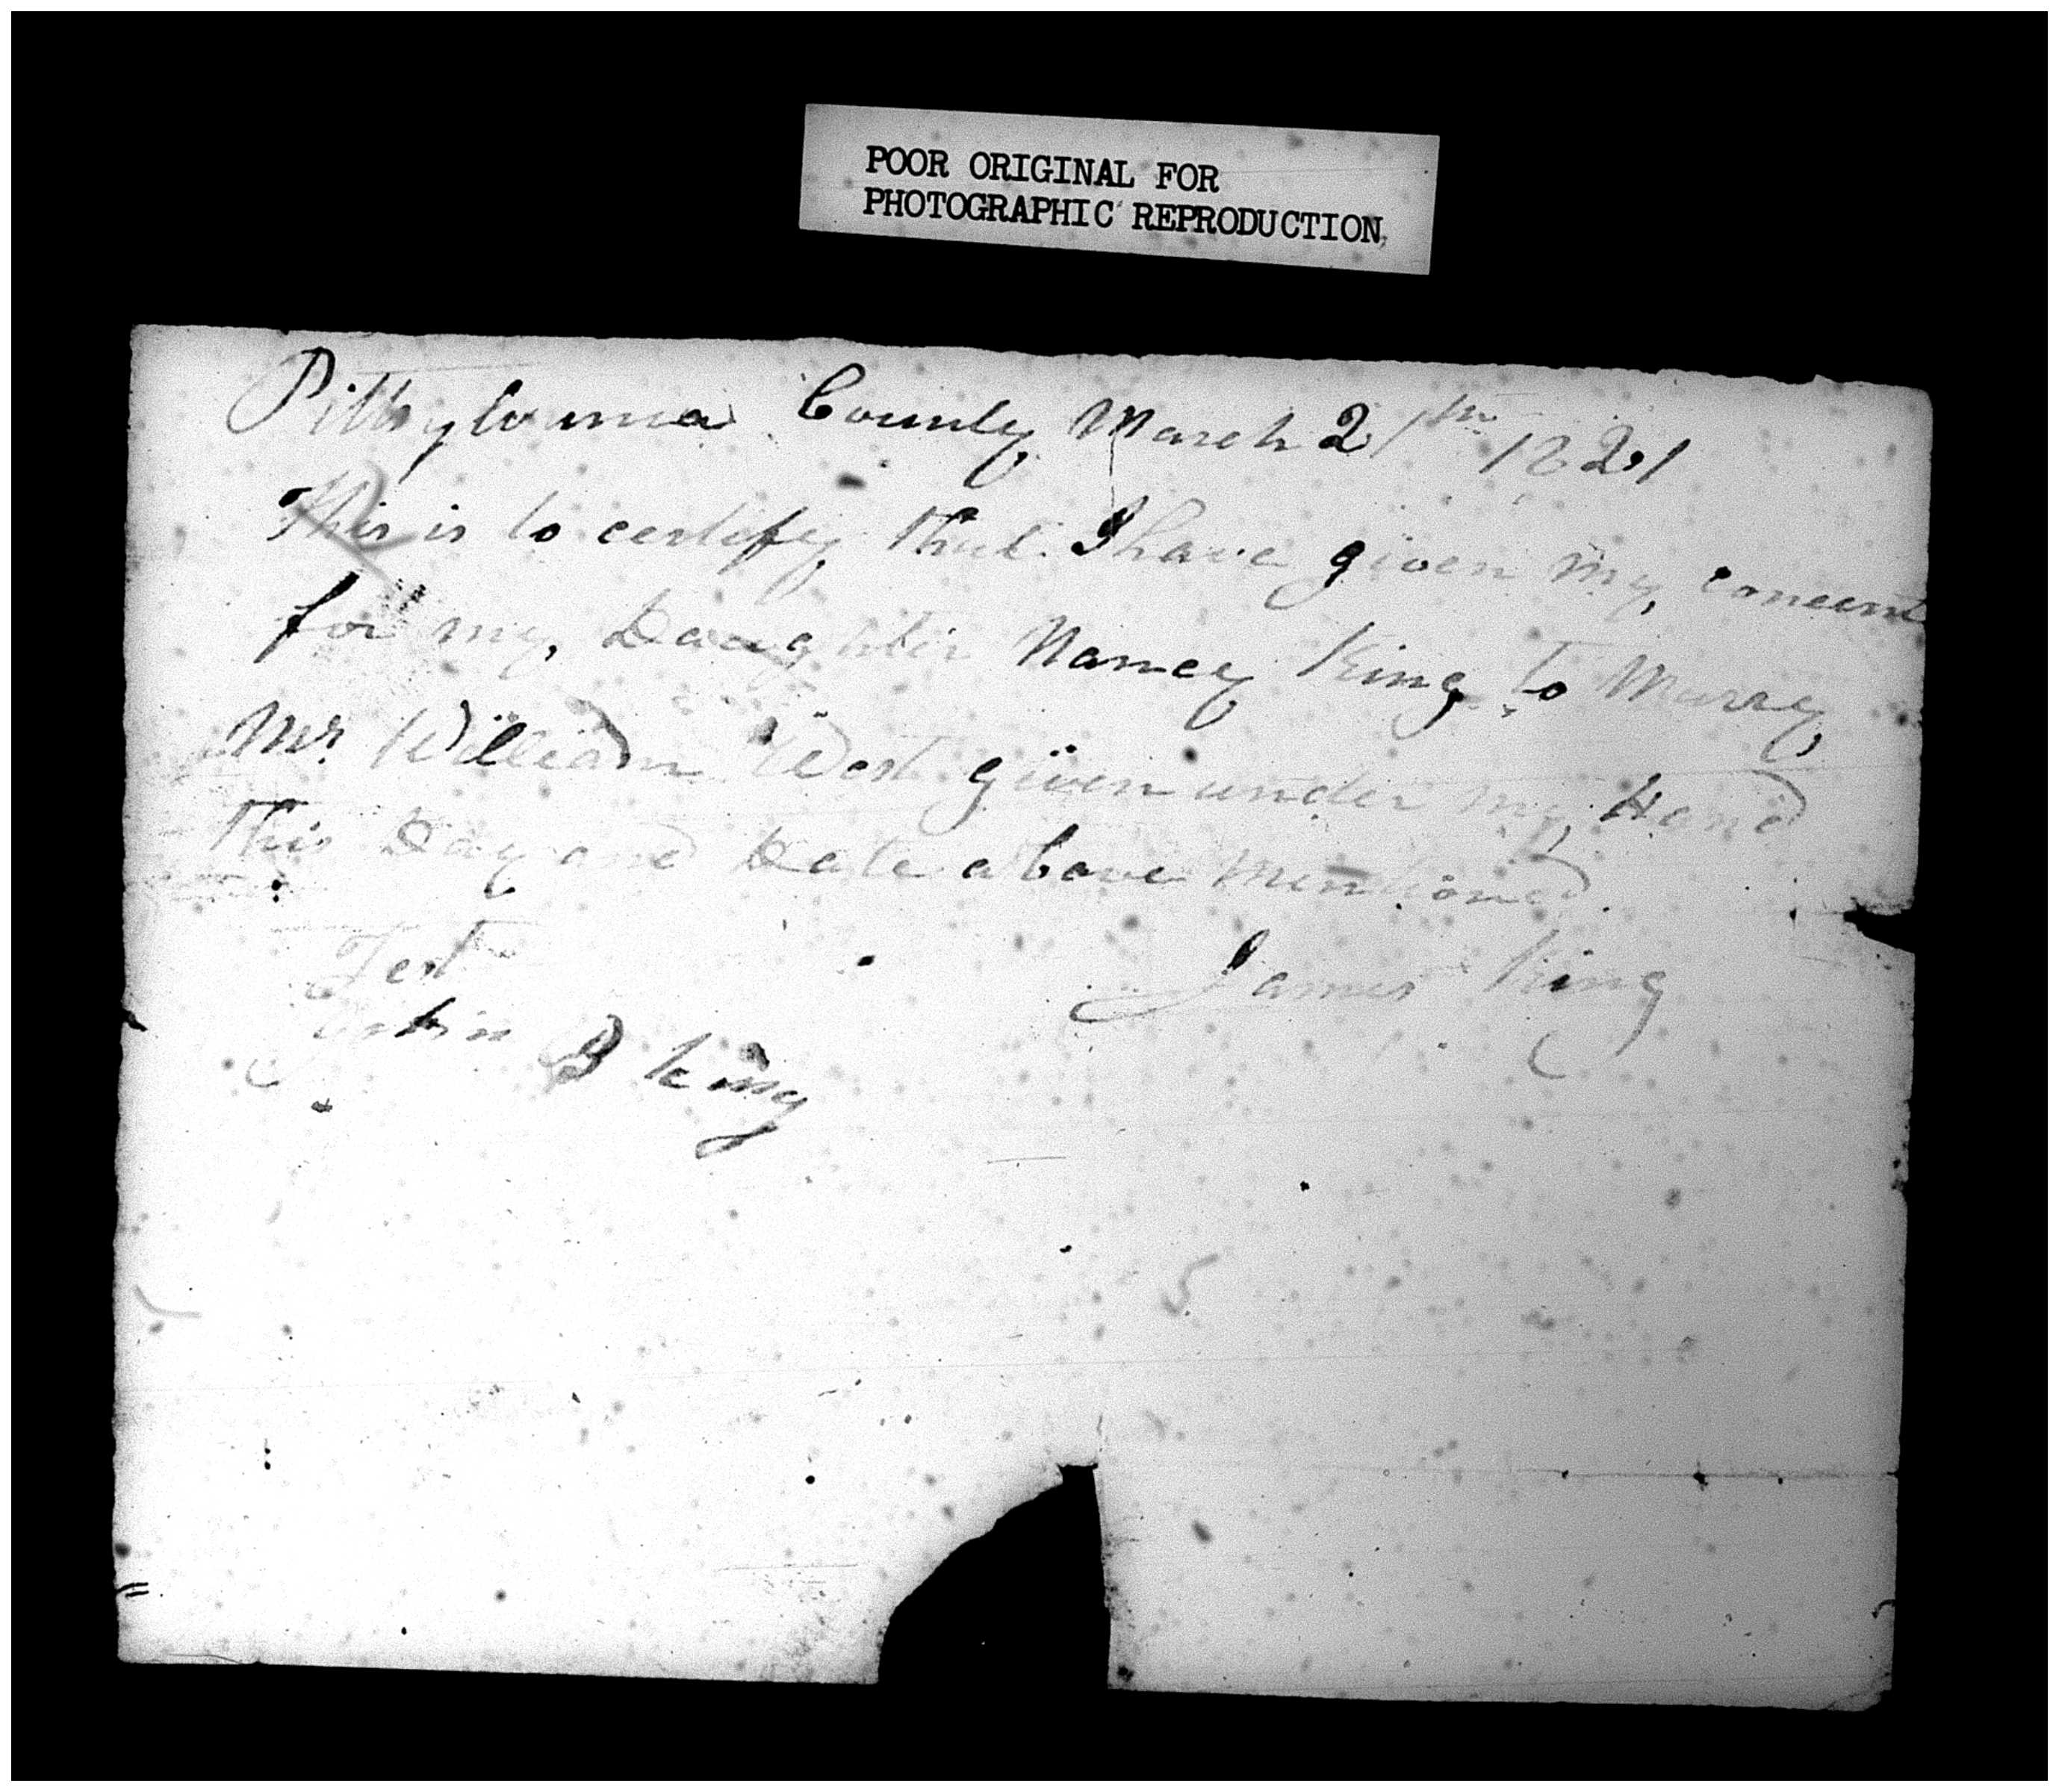 POOR ORIGINAL FOR
PHOTOGRAPHIC REPRODUCTION
Pittsylvania County March 21th 1821
This is to certify that I have given my concent
for my Daughter Nancy King to Marry
Mr. William West given under my Hand
This Day and Date above Mentioned.
Test James King
B King